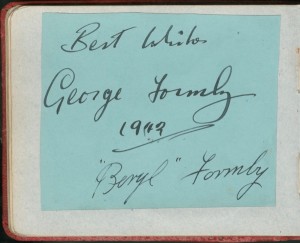 Best Wishes
George Formby
1942
"Beryl" Formby